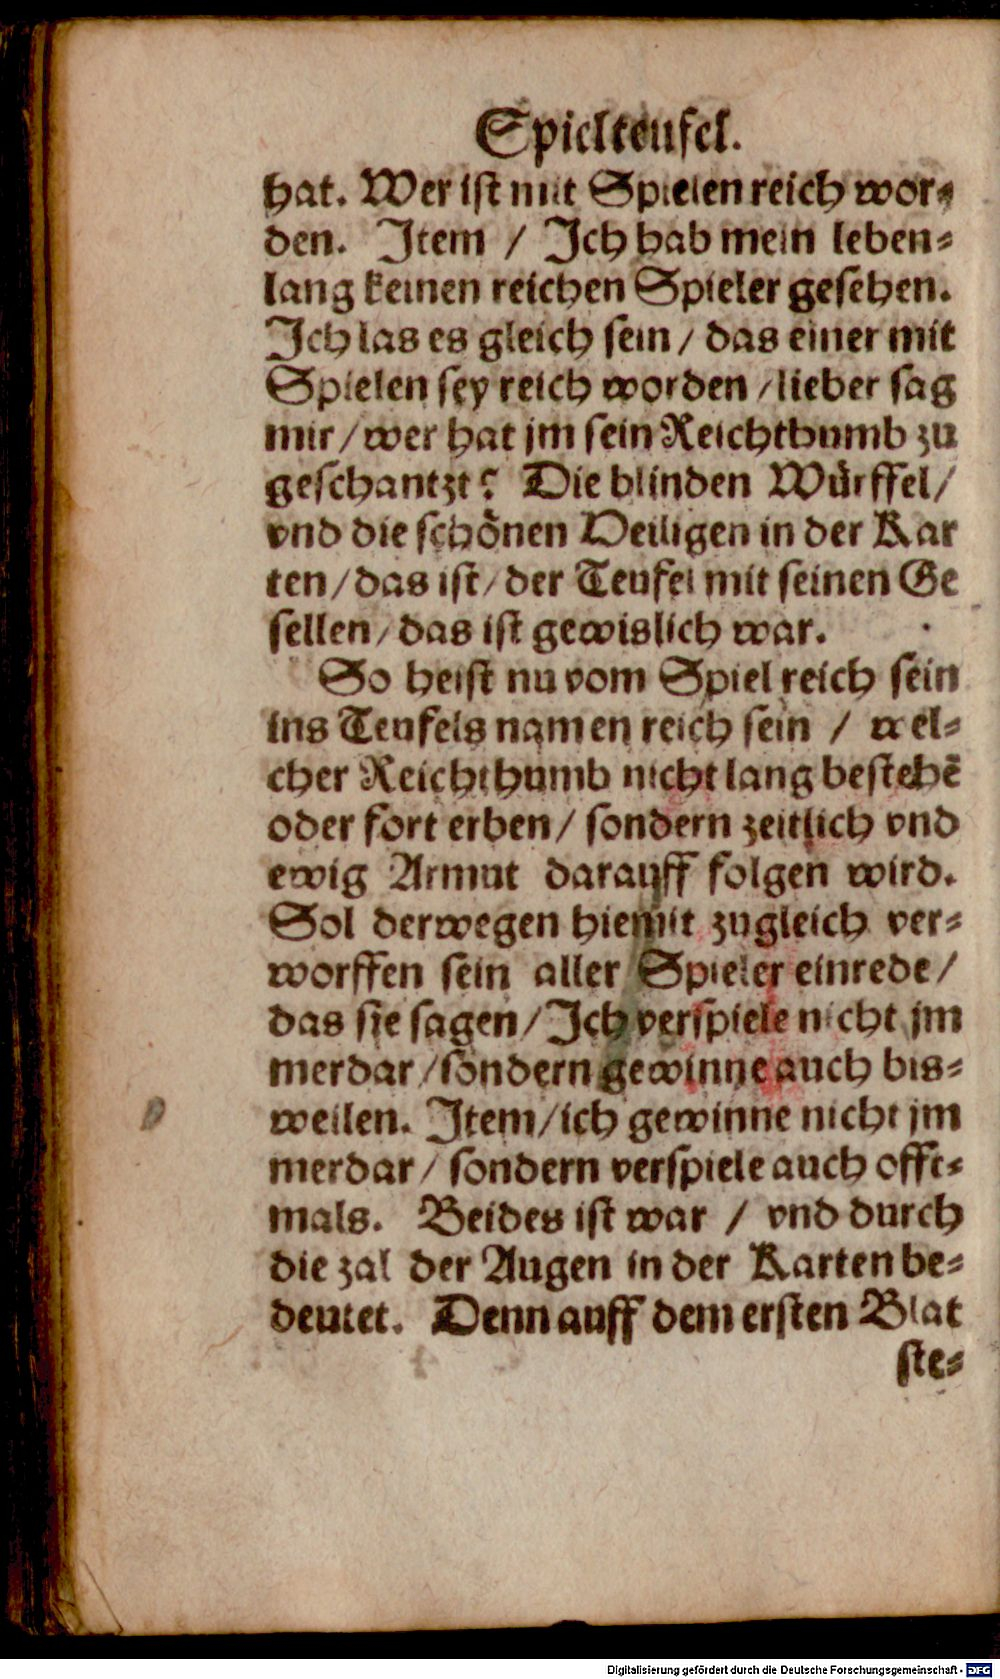 Spielteufel.
hat. Wer ist mit Spielen reich wor⸗
den. Item / Ich hab mein leben⸗
lang keinen reichen Spieler gesehen.
Ich las es gleich sein / das einer mit
Spielen sey reich worden / lieber sag
mir / wer hat jm sein Reichthumb zu
geschantzt? Die blinden Würffel /
vnd die schönen Heiligen in der Kar
ten / das ist / der Teufel mit seinen Ge
sellen / das ist gewislich war.
So heist nu vom Spiel reich sein
ins Teufels namen reich sein / wel⸗
cher Reichthumb nicht lang bestehē
oder fort erben / sondern zeitlich vnd
ewig Armut darauff folgen wird.
Sol derwegen hiemit zugleich ver⸗
worffen sein aller Spieler einrede /
das sie sagen / Ich verspiele nicht jm
merdar / sondern gewinne auch bis⸗
weilen. Item / ich gewinne nicht jm
merdar / sondern verspiele auch offt⸗
mals. Beides ist war / vnd durch
die zal der Augen in der Karten be⸗
deutet. Denn auff dem ersten Blat
ste⸗
Digitalisierung gefördert durch die Deutsche Forschungsgemeinschaft - DFG